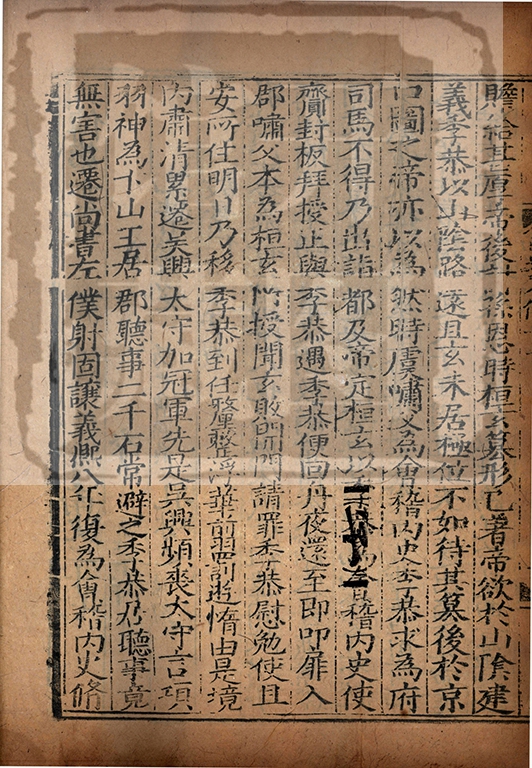 贍給甚厚帝後討孫恩時桓玄篡形已著帝欲於山陰建
義季恭以山陰路遠且玄未居極位不如待其篡後於京
口圖之帝亦以爲然時虞嘯父爲會稽内史季恭求爲府
司馬不得乃出詣都及帝定桓玄以季恭爲會稽内史使
齎封板拜授止與季恭遇季恭便回舟夜還至即叩扉入
郡嘯父本爲桓玄所授聞玄敗開門請罪季恭慰勉使且
安所住明日乃移季恭到任釐整浮華翦罰遊惰由是境
内肅清累遷吳興太守加冠軍先是吳興頻喪太守言項
羽神爲卞山王居郡聽事二千石常避之季恭乃聽事竟
無害也遷尚書左僕射固讓義熙八年復爲會稽内史脩